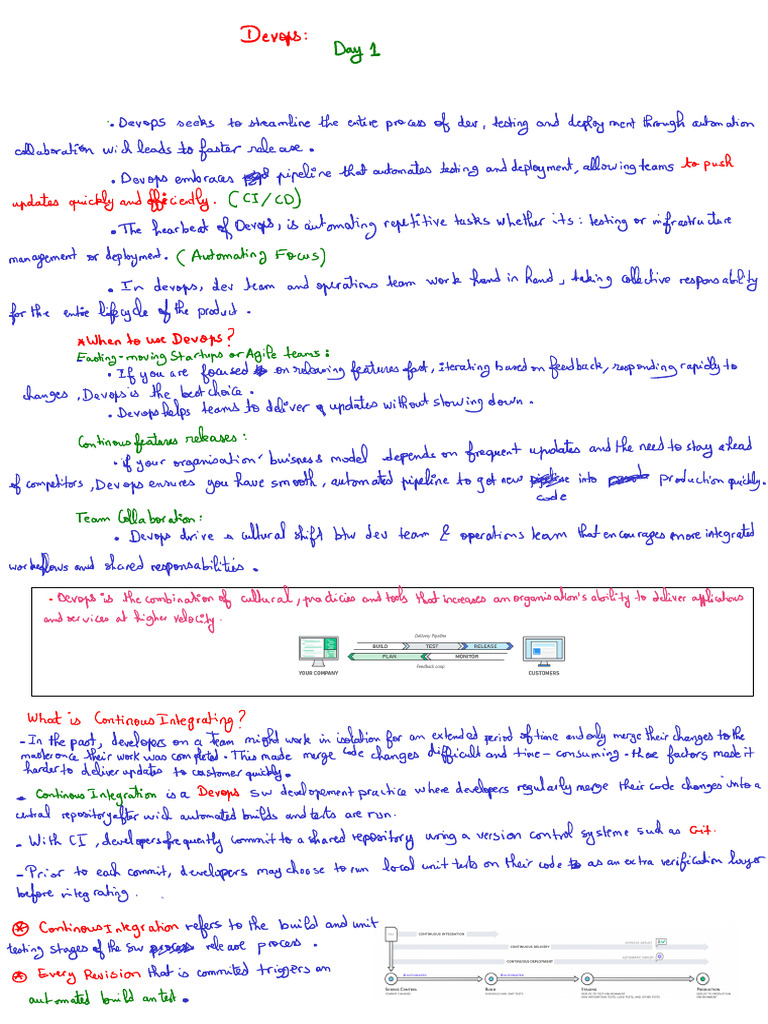 Devops:
Day 1
• Devops seeks to streamline the entire process of dev, testing and deployment through automation
collaboration wich leads to faster release.
• Devops embraces pipeline that automates testing and deployment, allowing teams to push
updates quickly and efficiently. (CI/CD)
• The hearbeat of Devops, is automating repetitive tasks whether its: testing or infrastructure
management or deployment. (Automating Focus)
• In devops, dev team and operations team work hand in hand, taking collective responsability
for the entire lifecycle of the product.
*When to use Devops?
Fasting-moving Startups or Agile teams:
• If you are focused on releasing features fast, iterating based on feedback, responding rapidly to
changes, Devops is the best choice.
• Devops helps teams to deliver updates without slowing down.
Continous features releases:
• if your organisation' buisness model depends on frequent updates and the need to stay ahead
of competitors, Devops ensures you have smooth, automated pipeline to get new code into production quickly.
Team Collaboration:
• Devops drive a cultural shift btw dev team & operations team that encourages more integrated
workflows and shared responsabilities.
- Devops is the combination of cultural, practicies and tools that increases an organisation's ability to deliver applications
and services at higher velocity.
Delivery Pipeline
BUILD TEST RELEASE
PLAN MONITOR
Feedback Loop
YOUR COMPANY CUSTOMERS
What is Continous Integrating?
- In the past, developers on a Team might work in isolation for an extended period of time and only merge their changes to the
master once their work was completed. This made merge code changes difficult and time-consuming. these factors made it
harder to deliver updates to customer quickly.
- Continous Integration is a Devops sw developement practice where developers regularly merge their code changes into a
central repository after wich automated builds and tests are run.
- With CI, developers frequently commit to a shared repository using a version control systeme such as Git.
- Prior to each commit, developers may choose to run local unit tests on their code as an extra verification layer
before integrating.
* Continous Integration refers to the build and unit
testing stages of the sw release process.
* Every Revision that is commited triggers an
automated build an test.
CONTINUOUS INTEGRATION
CONTINUOUS DELIVERY
CONTINUOUS DEPLOYMENT
SOURCE CONTROL BUILD STAGING PRODUCTION